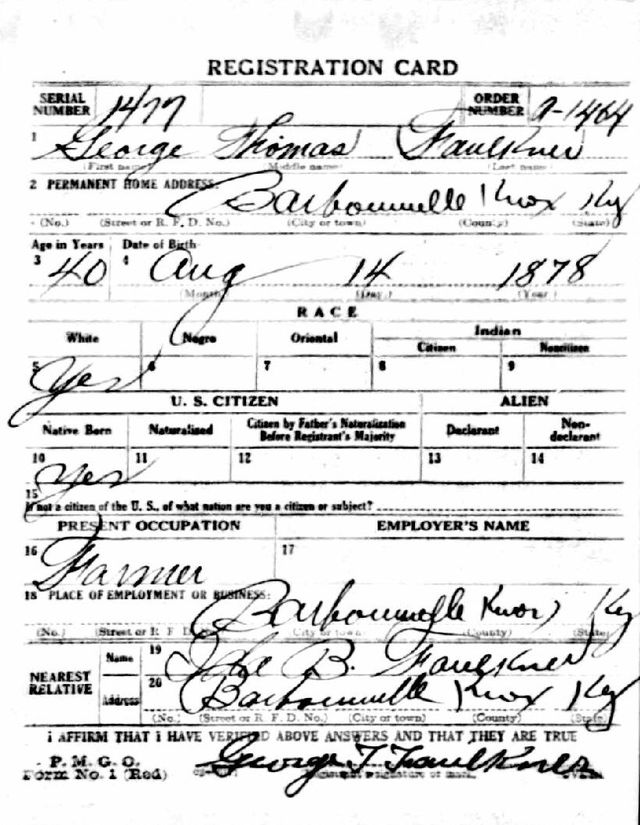 REGISTRATION CARD
SERIAL NUMBER 1477 ORDER NUMBER A-1464
1 George Thomas Faulkner
(First name) (Middle name) (Last name)
2 PERMANENT HOME ADDRESS: Barbourville Knox Ky
(No.) (Street or R. F. D. No.) (City or town) (County) (State)
Age in Years Date of Birth
3 40 4 Aug 14 1878
(Month) (Day.) (Year)
RACE
White Negro Oriental Indian
Citizen Noncitizen
5 Yes 6 7 8 9
U. S. CITIZEN ALIEN
Native Born Naturalized Citizen by Father's Naturalization Before Registrant's Majority Declarant Non-declarant
10 Yes 11 12 13 14
15
If not a citizen of the U. S., of what nation are you a citizen or subject?
PRESENT OCCUPATION EMPLOYER'S NAME
16 Farmer 17
18 PLACE OF EMPLOYMENT OR BUSINESS: Barbourville Knox Ky
(No.) (Street or R. F. D. No.) (City or town) (County) (State)
NEAREST RELATIVE Name 19 B. Faulkner
Address 20 Barbourville Knox Ky
(No.) (Street or R. F. D. No.) (City or town) (County) (State)
I AFFIRM THAT I HAVE VERIFIED ABOVE ANSWERS AND THAT THEY ARE TRUE
P. M. G. O.
Form No. 1 (Red) George T Faulkner